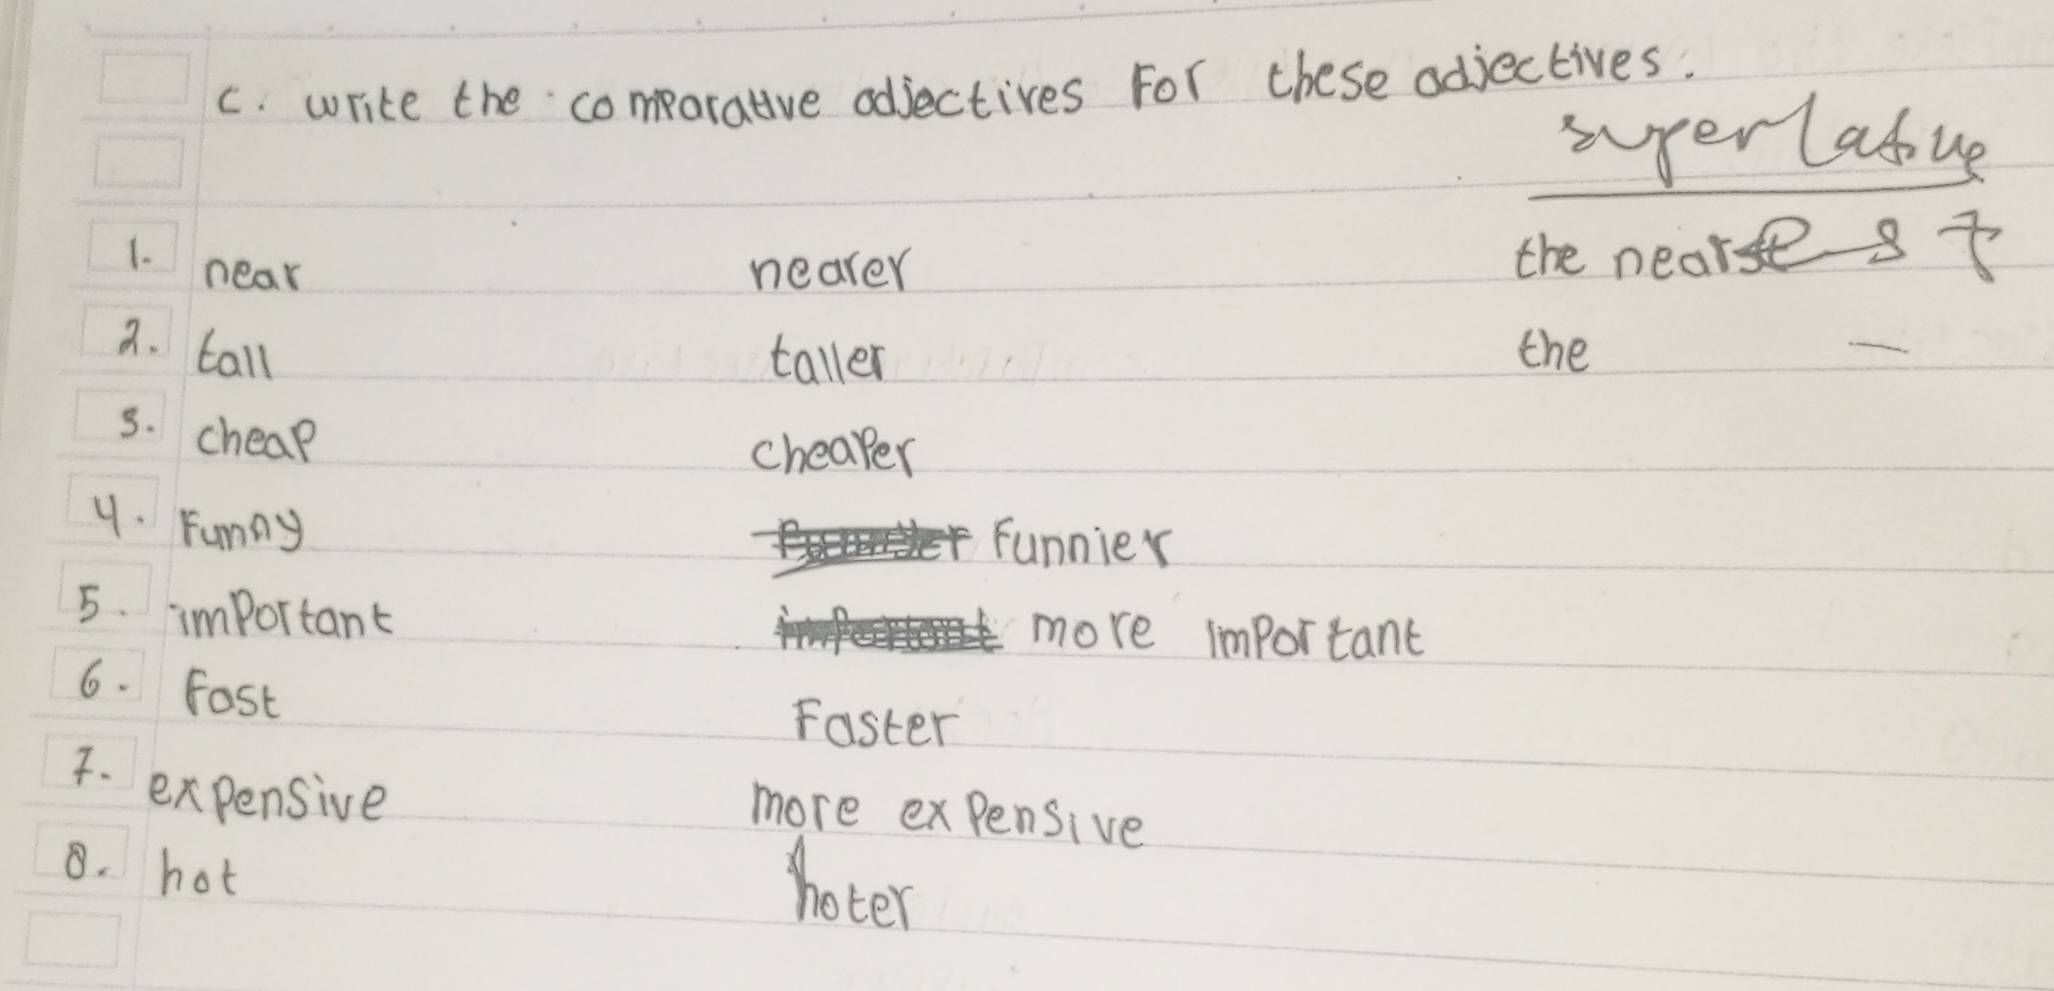 C. write the comparative adjectives For these adjectives.
superlative
1. near nearer the nearest
2. tall taller the —
3. cheap cheaper
4. Funny Funnier
5. important more important
6. Fast Faster
7. expensive more expensive
8. hot hoter